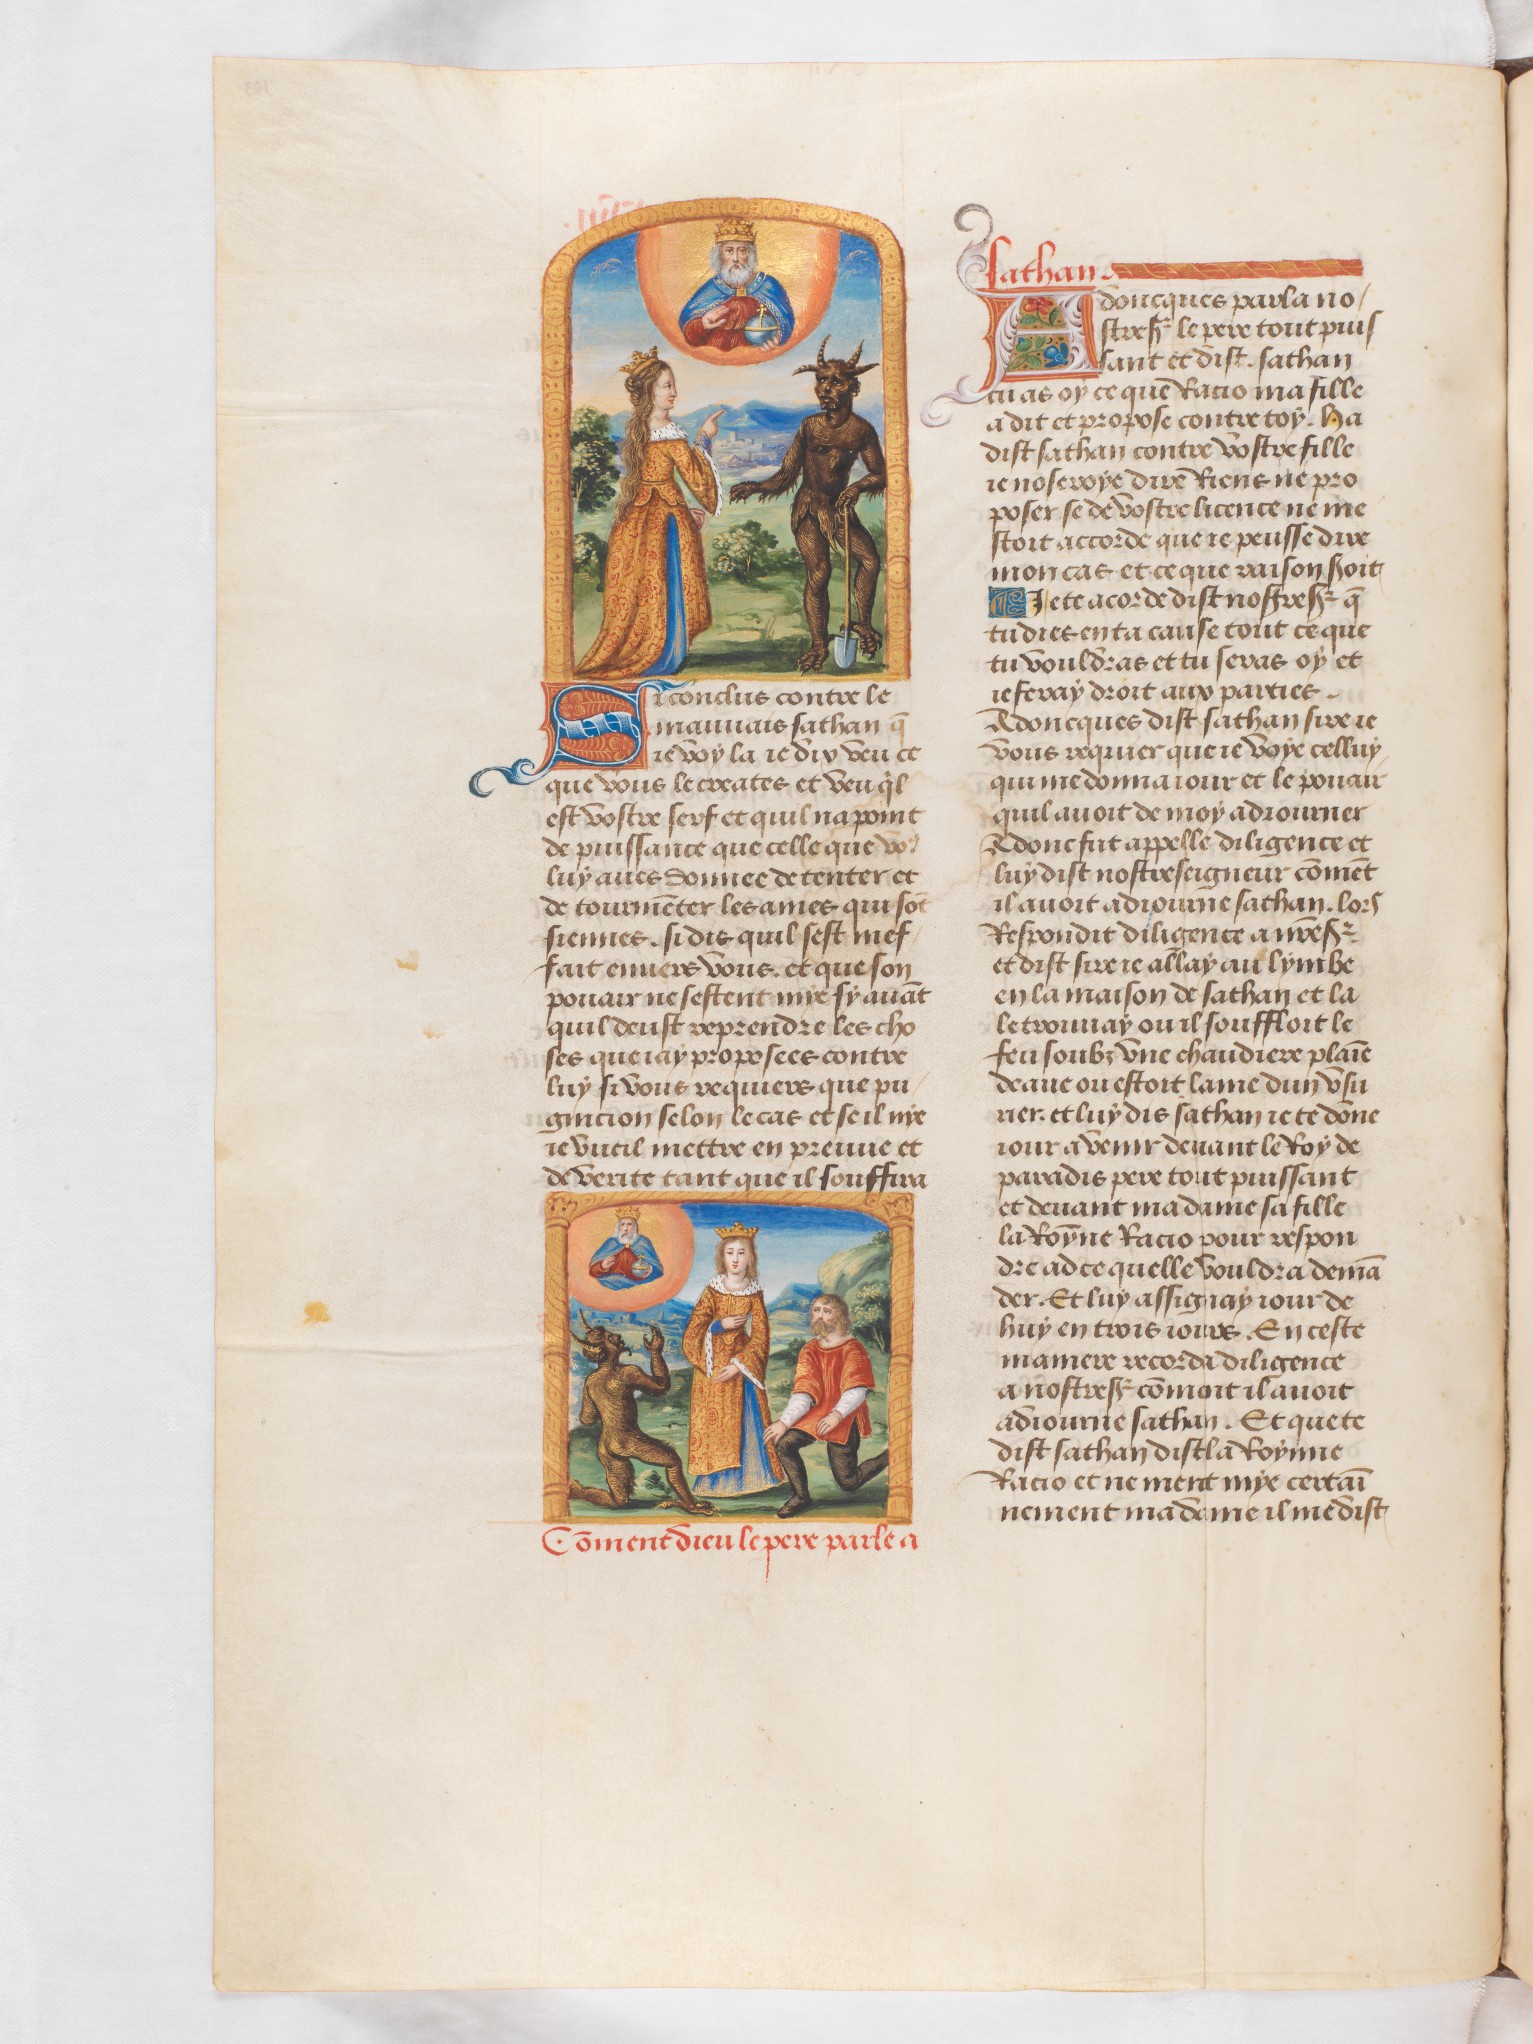 Si conclus contre le
mauuais sathan q̄
ie voy la ie dix veu ce
que vous le creates et veu q̉l
est vostre serf et quil na point
de puissance que celle que vo᷒
luy aues donnee de tenter et
de tourmēter les ames qui sōt
siennes. si dis quil sest mef-
fait enuers vous. et que son
pouair ne sestent mye sy auāt
quil deust reprendre les cho
ses que iay proposees contre
luy si vous requiers que pu/
gnicion selon le cas et se il nye
ie vueil mettre en preuue et
de verite tant que il souffira
Cōment dieu le pere parle a
sathan.
Adoncques parla no/
stre sr̄ le pere tout puis
sant et dist. sathan
tu as oy ce que Racio ma fille
a dit et propose contre toy. Ha
dist sathan contre vostre fille
ie noseroye dire Riens ne pro
poser se de vostre licence ne me
stoit accorde que ie peusse dire
mon cas et ce que raison soit
Ie te acorde dist nostre sr̄ q̄
tu dies en ta cause tout ce que
tu vouldras et tu seras oy et
ie feray droit aux parties.
Adoncques dist sathan sire ie
vous requier que ie voye celluy
qui me donna iour et le pouair
quil auoit de moy adiourner
Adonc fut appelle diligence et
luy dist nostreseigneur cōmēt
il auoit adiourne sathan. lors
Respondit diligence a nr̄e sr̄
et dist sire ie allay au lymbe
en la maison de sathan et la
le trouuay ou il souffloit le
feu soubz vne chaudiere plaīe
deaue ou estoit lame dun vsu
rier. et luy dis sathan ie te dōne
iour a venir deuant le Roy de
paradis pere tout puissant
et deuant madame sa fille
la Royne Racio pour respon
dre ad ce quelle vouldra demā
der. Et luy assignay iour de
huy en trois iours. En ceste
maniere recorda diligence
a nostre sr̄ cōment il auoit
adiourne sathan. Et que te
dist sathan dist la Roynne
Racio et ne ment mye certaī
nement madame il me dist